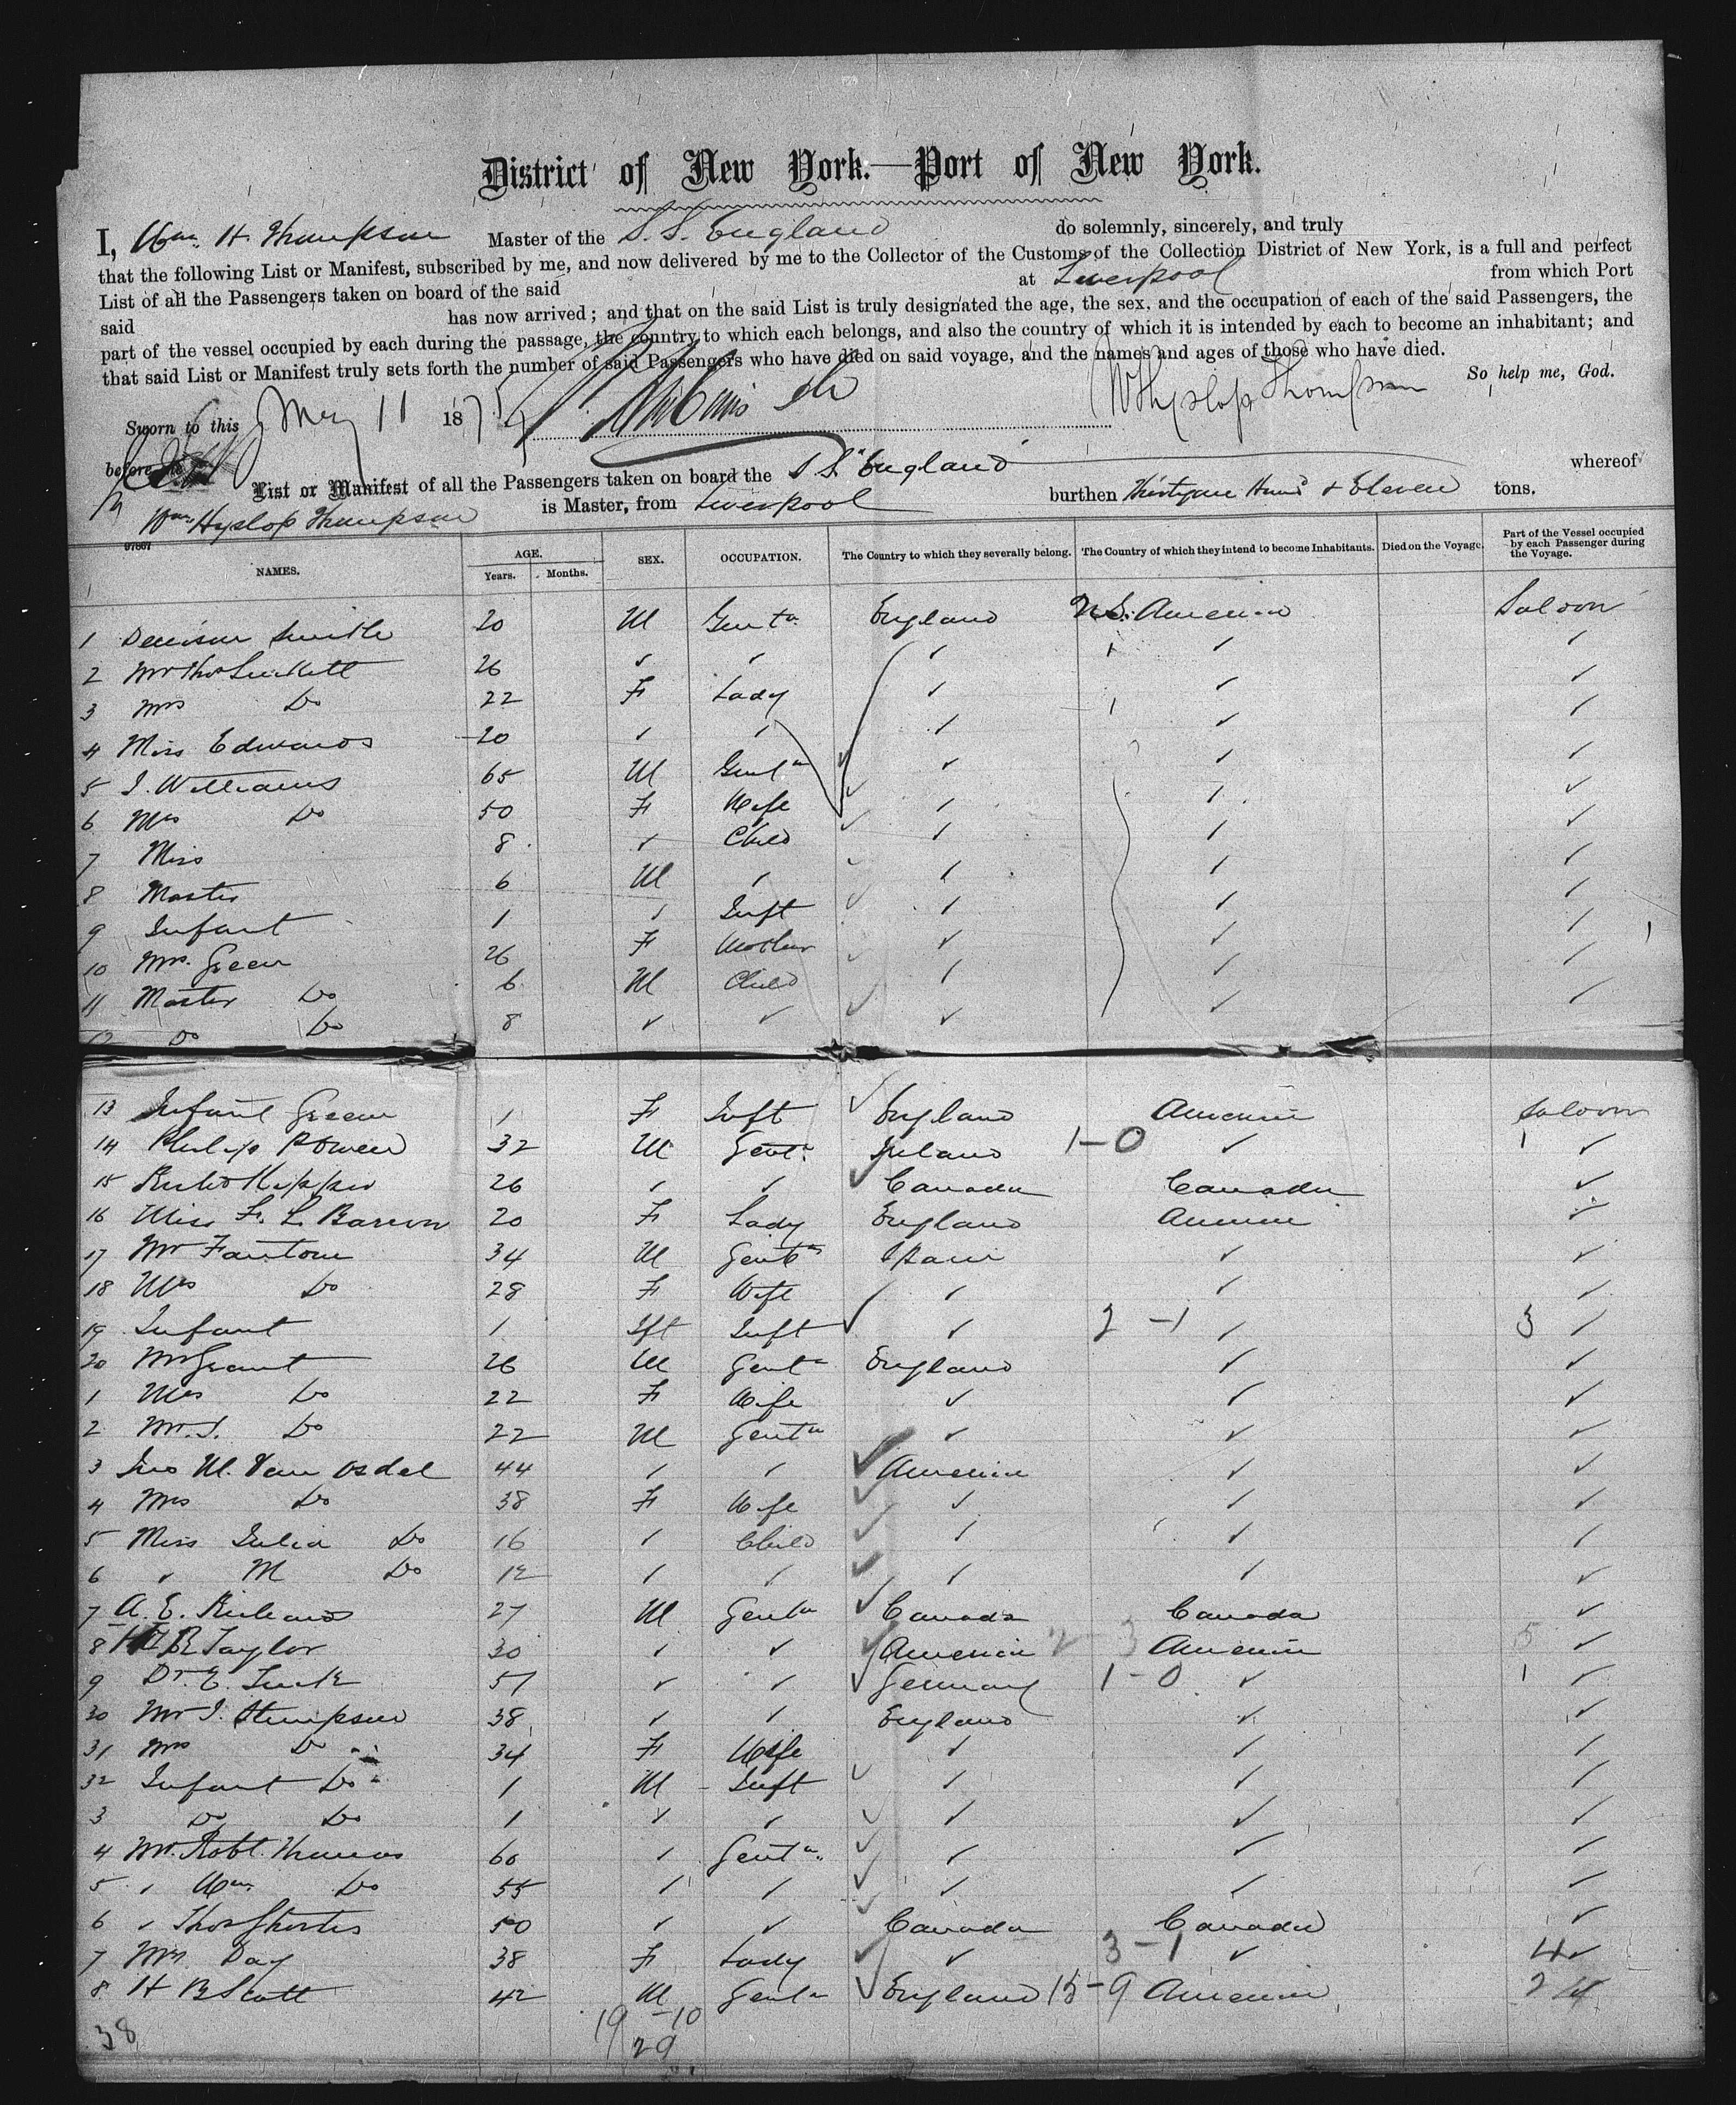 District of New York.—Port of New York.
I, Wm. H. Thompson Master of the S.S. England do solemnly, sincerely, and truly
that the following List or Manifest, subscribed by me, and now delivered by me to the Collector of the Customs of the Collection District of New York, is a full and perfect
List of all the Passengers taken on board of the said at Liverpool from which Port
said has now arrived; and that on the said List is truly designated the age, the sex, and the occupation of each of the said Passengers, the
part of the vessel occupied by each during the passage, the country to which each belongs, and also the country of which it is intended by each to become an inhabitant; and
that said List or Manifest truly sets forth the number of said Passengers who have died on said voyage, and the names and ages of those who have died.
So help me, God.
Sworn to this May 11 1875 W Hyslop Thompson
before me
List or Manifest of all the Passengers taken on board the S.S. England whereof
Wm. Hyslop Thompson is Master, from Liverpool burthen Hund & Eleven tons.
97867
NAMES. AGE. Years. Months. SEX. OCCUPATION. The Country to which they severally belong. The Country of which they intend to become Inhabitants. Died on the Voyage. Part of the Vessel occupied by each Passenger during the Voyage.
1 Denison Smith 20 M Gentn England U.S. America Saloon
2 Mr Thos 26 ✓ ✓ ✓ ✓ ✓
3 Mrs Do 22 F Lady ✓ ✓ ✓
4 Miss Edwards 20 ✓ ✓ ✓ ✓ ✓
5 J. Williams 65 M Gentn ✓ ✓ ✓
6 Mrs Do 50 F Wife ✓ ✓ ✓
7 Miss 8 ✓ Child ✓ ✓ ✓
8 Master 6 M ✓ ✓ ✓ ✓
9 Infant 1 ✓ Inft ✓ ✓ ✓
10 Mrs. Green 26 F Mother ✓ ✓ ✓
11 Master Do 6 M Child ✓ ✓ ✓
12 Do Do 8 ✓ ✓ ✓ ✓ ✓
13 Infant Green 1 F Inft England America Saloon
14 Philip Power 32 M Gentn Ireland 1-0 ✓ 1 ✓
15 26 ✓ ✓ Canada Canada ✓
16 Miss F. L. Barron 20 F Lady England America ✓
17 Mr Fantom 34 M Gentn Spain ✓ ✓
18 Mrs Do 28 F Wife ✓ ✓ ✓
19 Infant 1 Ift Inft ✓ 2-1 ✓ 3 ✓
20 Mr Grant 26 M Gentn England ✓ ✓
1 Mrs Do 22 F Wife ✓ ✓ ✓
2 Mr. J. Do 22 M Gentn ✓ ✓ ✓
3 Jno M. Van Osdel 44 ✓ ✓ America ✓ ✓
4 Mrs Do 38 F Wife ✓ ✓ ✓
5 Miss Julia Do 16 ✓ Child ✓ ✓ ✓
6 ✓ M Do 12 ✓ ✓ ✓ ✓ ✓
7 A. E. Richards 27 M Gentn Canada Canada ✓
8 Taylor 30 ✓ ✓ America 2 3 America 5 ✓
9 Dr. E. 57 ✓ ✓ Germany 1-0 ✓ 1 ✓
30 Mr J. Simpson 38 ✓ ✓ England ✓ ✓
31 Mrs Do 34 F Wife ✓ ✓ ✓
32 Infant Do 1 M Inft ✓ ✓ ✓
3 Do Do 1 ✓ ✓ ✓ ✓ ✓
4 Mr. Robt. Thomas 60 ✓ Gentn. ✓ ✓ ✓
5 ✓ Wm. Do 55 ✓ ✓ ✓ ✓ ✓
6 ✓ Thos Shortis 50 ✓ ✓ Canada Canada ✓
7 Mrs. Day 38 F Lady ✓ 3-1 ✓ 4 ✓
8 H B Scott 42 M Gentn England 15-9 America 24
38 19-10
29